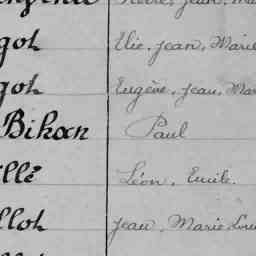 got Elie, Jean, Marie
got Eugène, Jean, Mar
Bihan Paul
llé Léon, Emile.
llot Jean, Marie Lou